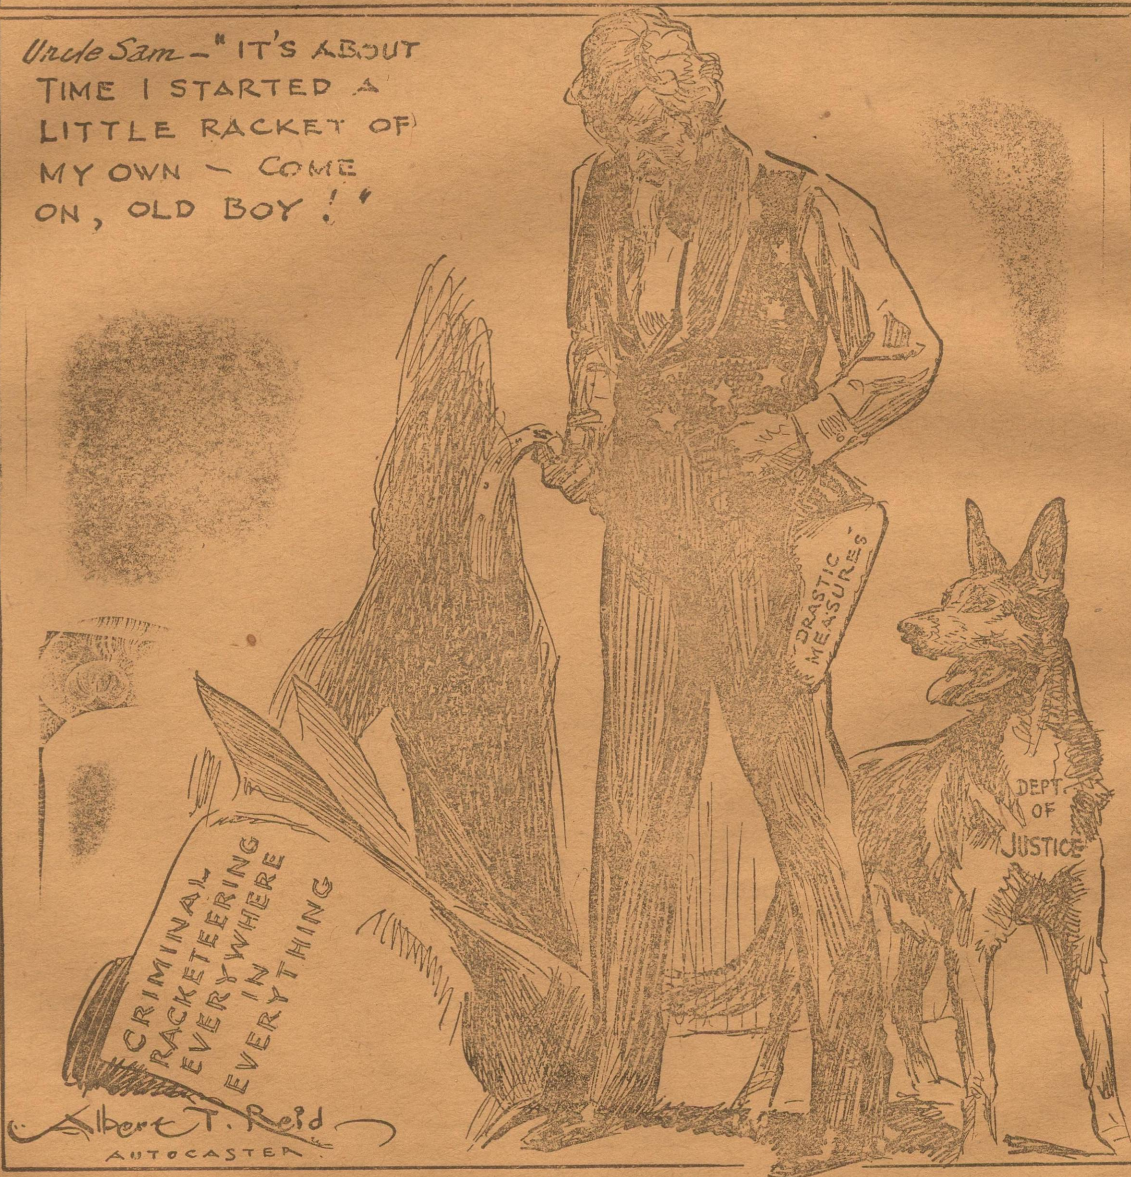 Uncle Sam - "IT'S ABOUT
TIME I STARTED A
LITTLE RACKET OF
MY OWN - COME
ON, OLD BOY!"
DRASTIC
MEASURES
DEPT.
OF
JUSTICE
CRIMINAL
RACKETEERING
EVERYWHERE
IN
EVERYTHING
Albert T. Reid
AUTOCASTER